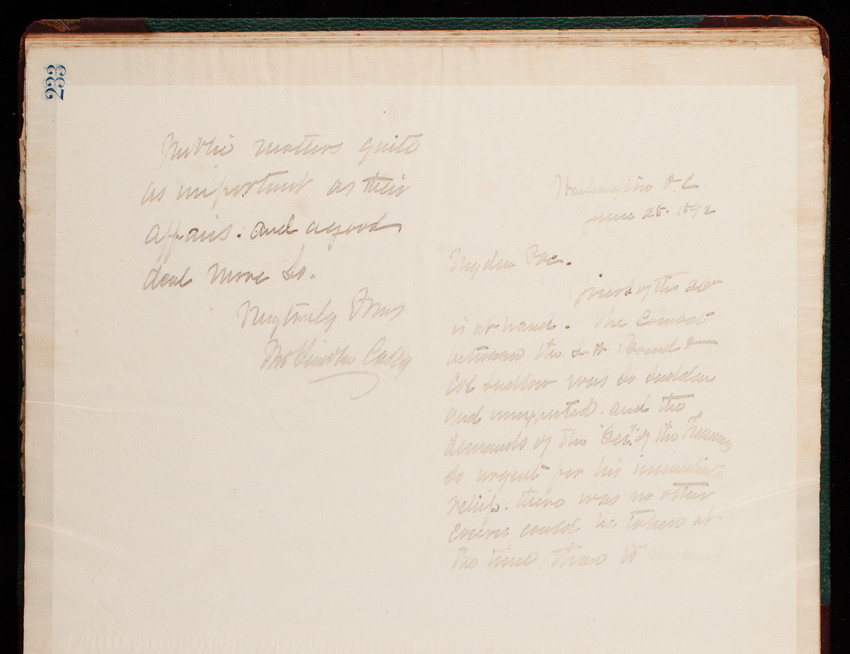 233
Public matters quite
as important as their
affairs. and a good
deal more so.
Very truly Yours
Thos Lincoln Casey
Washington D.C.
June 25. 1892
My dear
Yours of the
is at hand. The
between the L. H. Board &
Col Ludlow was so sudden
and unexpected. and the
demands of the Sec. of the Treasury
so urgent for his immediate
relief. there was no other
course could be taken at
the time, than to